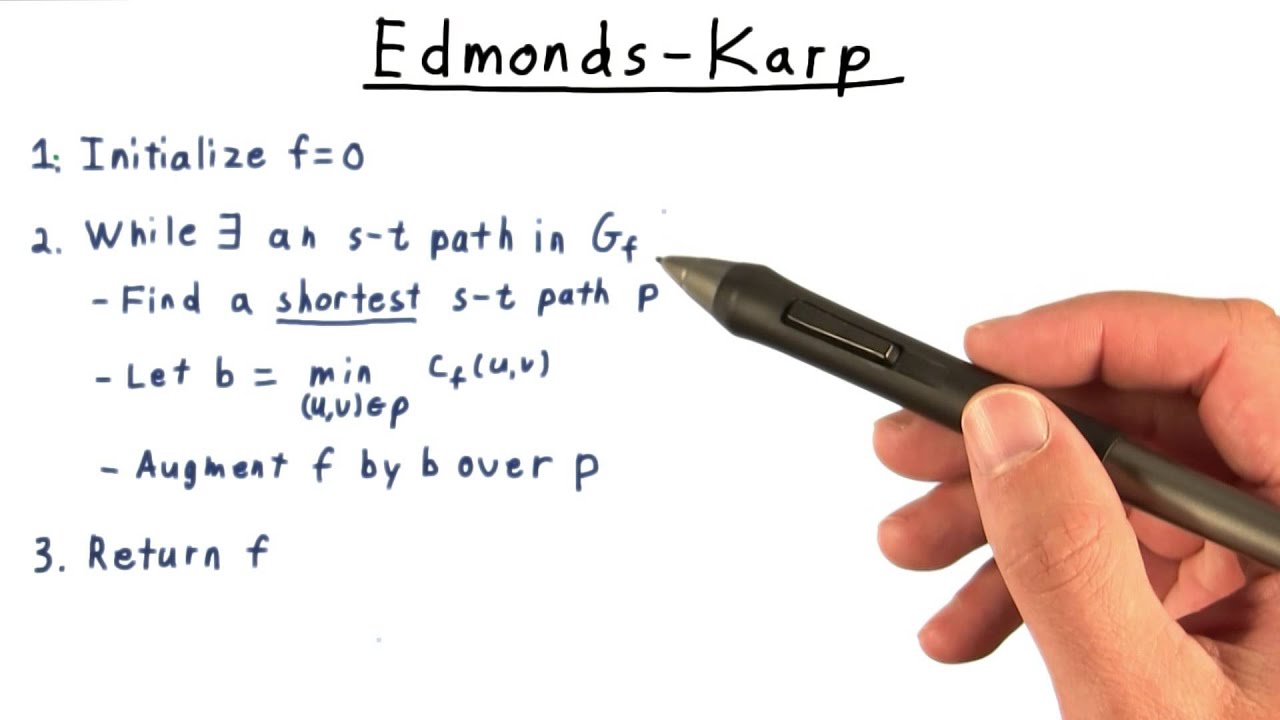 Edmonds-Karp
1. Initialize f=0
2. While ∃ an s-t path in G_f
- Find a shortest s-t path p
- Let b = min C_f(u,v)
(u,v)∈p
- Augment f by b over p
3. Return f